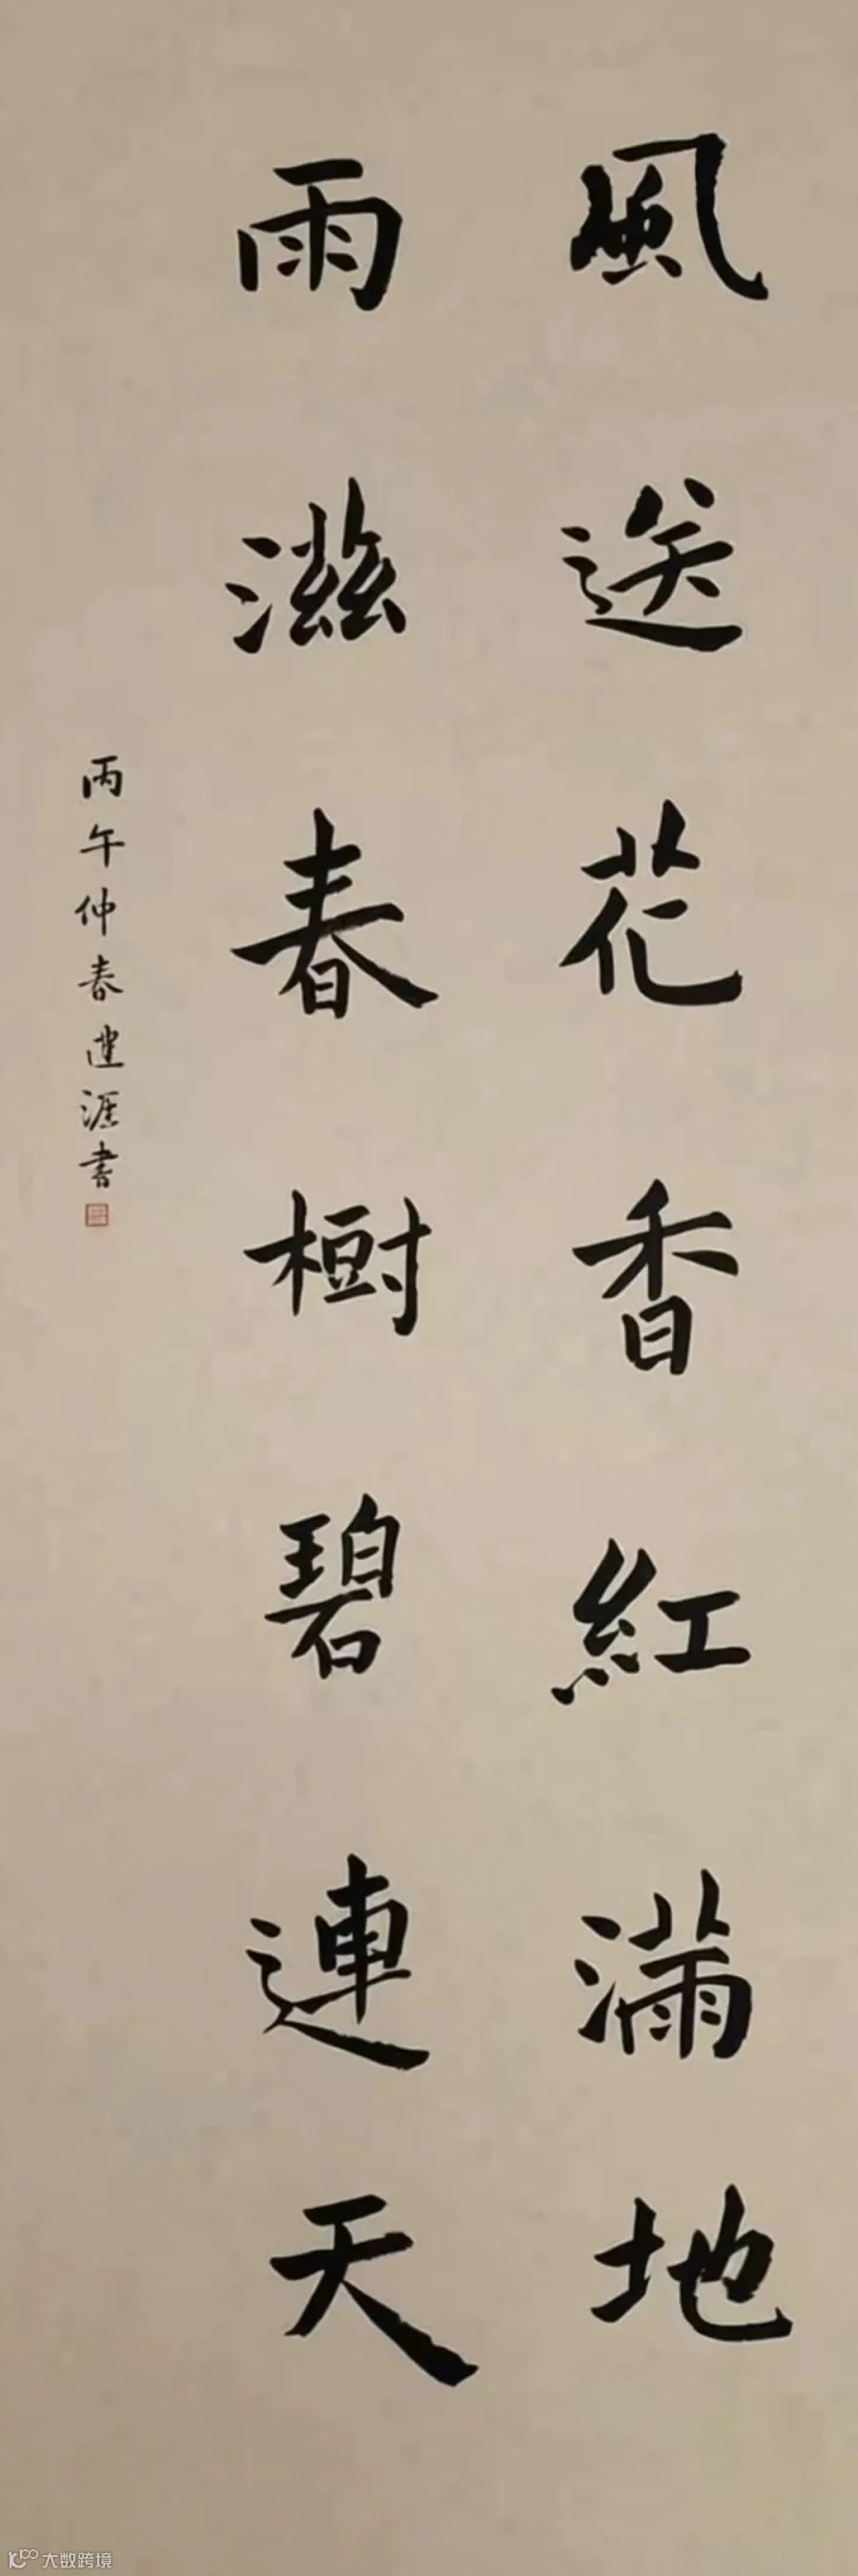 風送花香紅滿地
雨滋春樹碧連天
丙午仲春建涯書
大数跨境